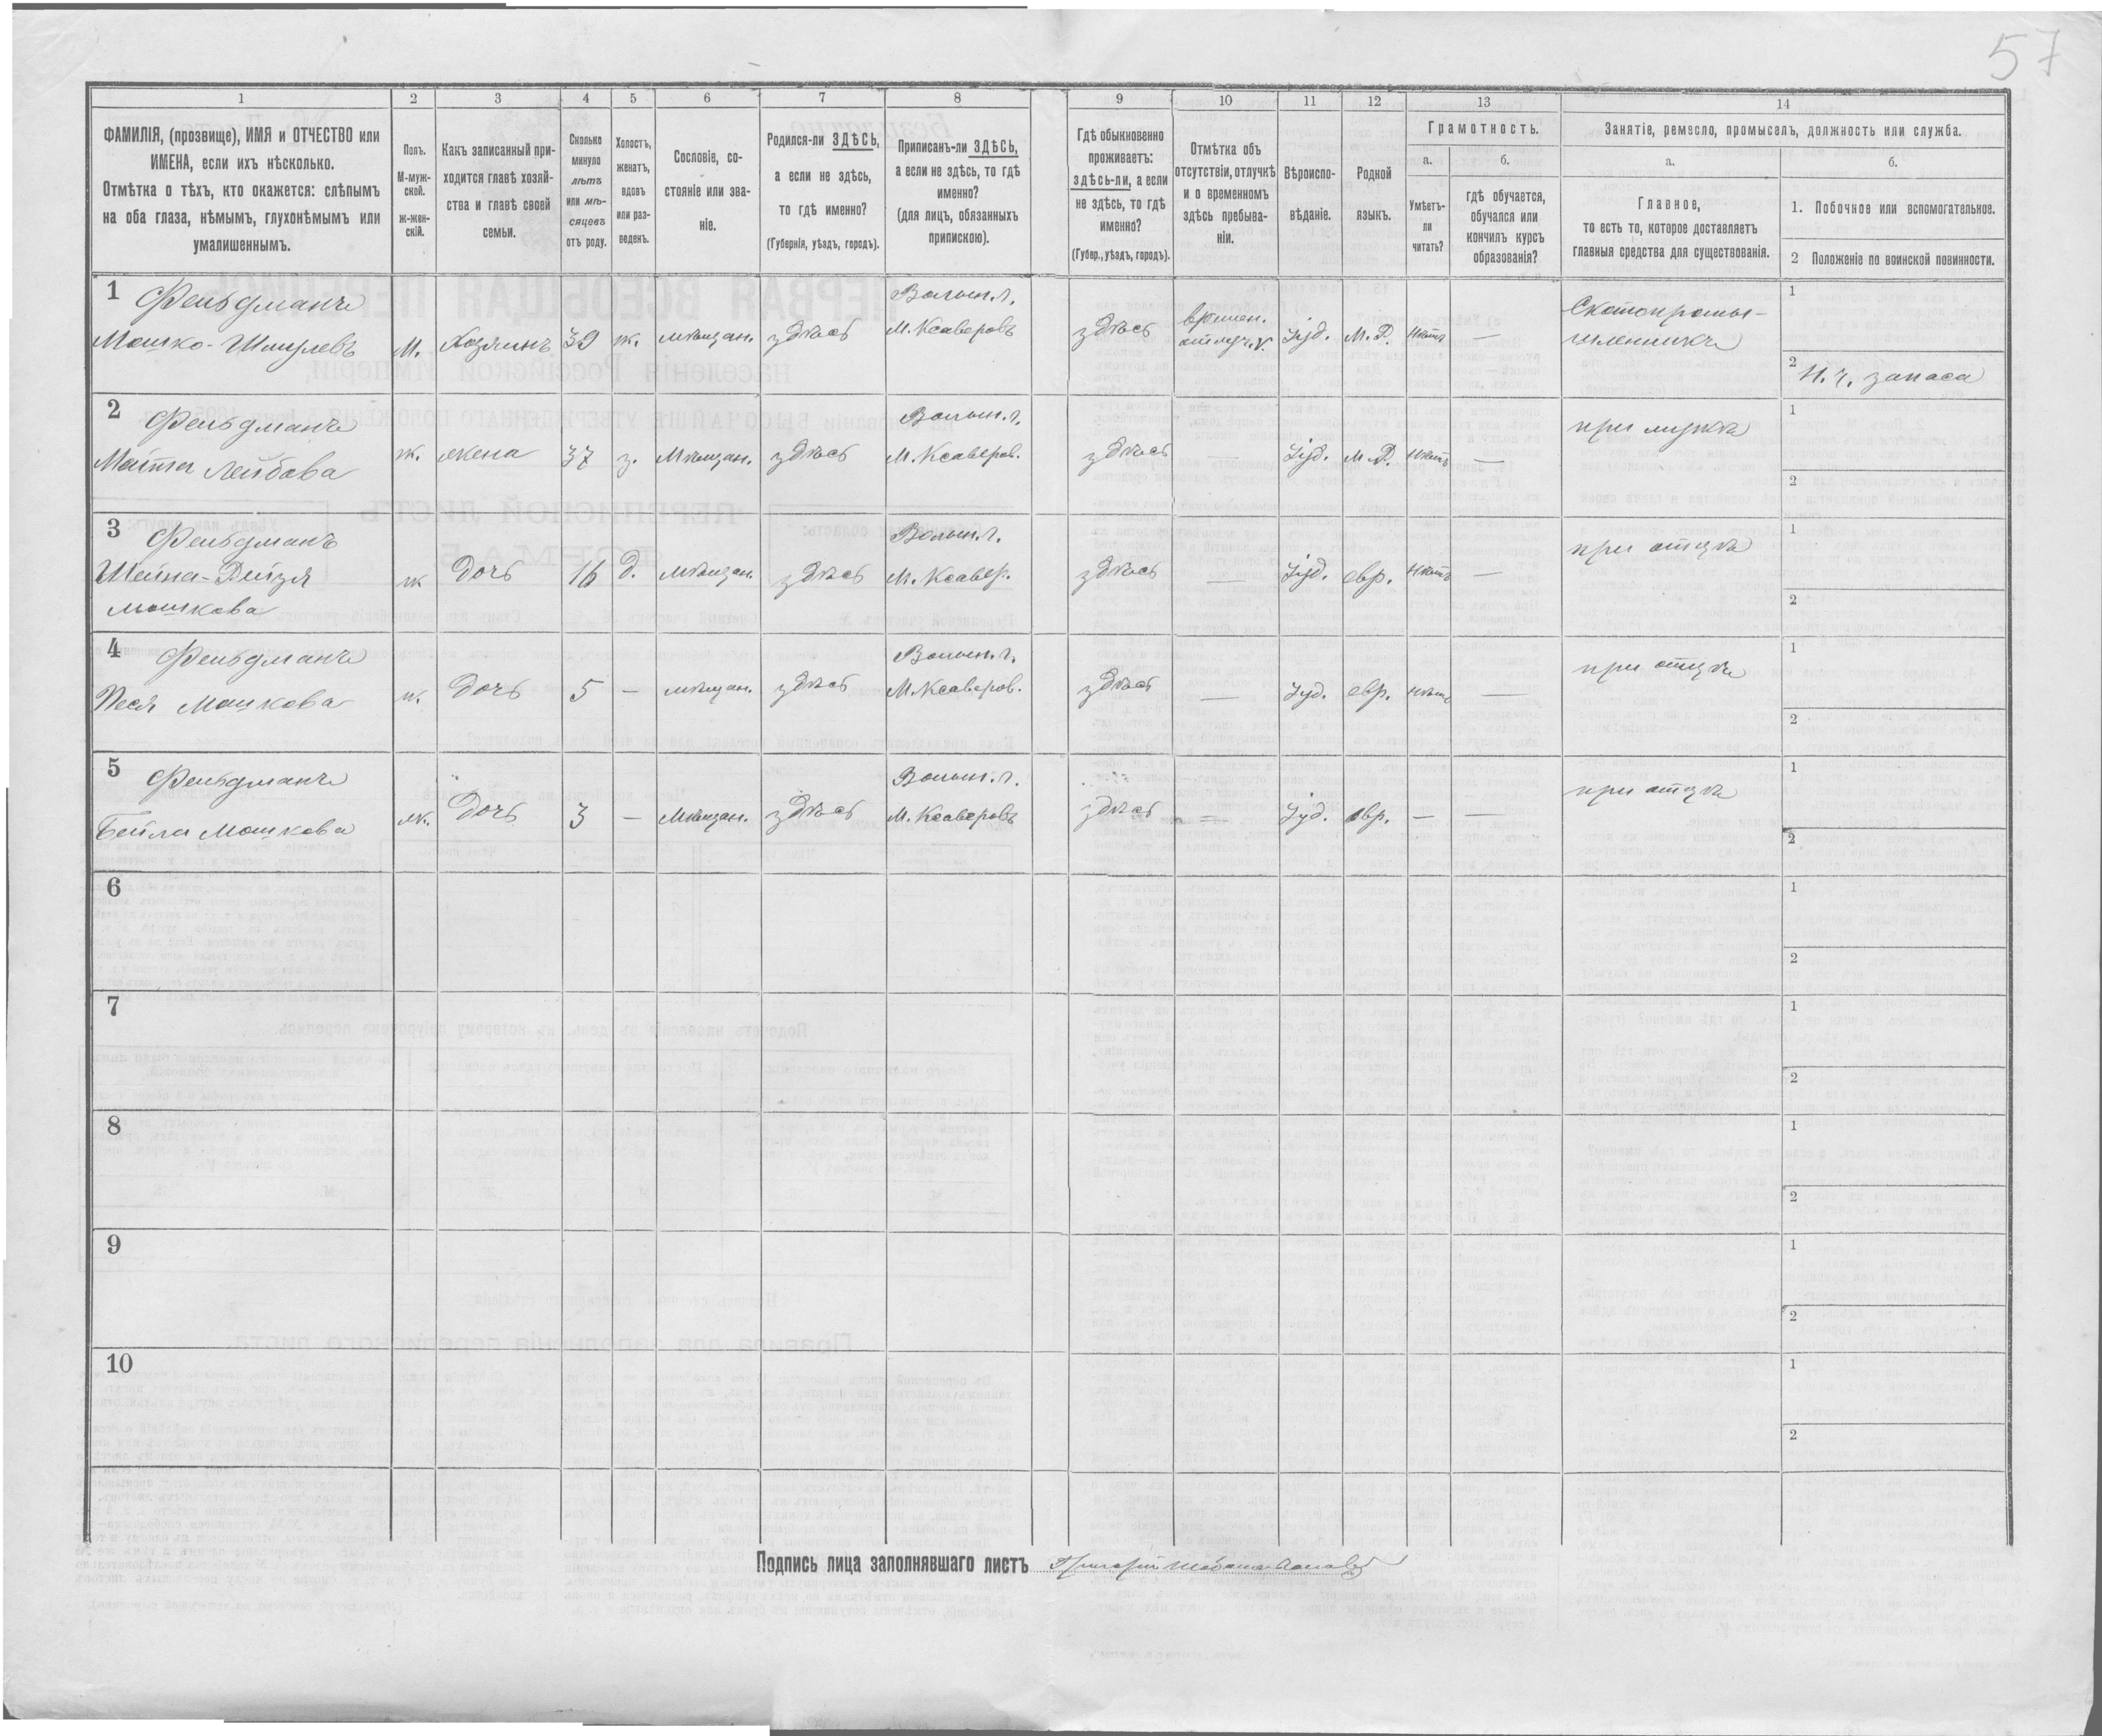 57
1 2 3 4 5 6 7 8 9 10 11 12 13 14
ФАМИЛІЯ, (прозвище), ИМЯ и ОТЧЕСТВО или ИМЕНА, если ихъ нѣсколько.
Отмѣтка о тѣхъ, кто окажется: слѣпымъ на оба глаза, нѣмымъ, глухонѣмымъ или умалишеннымъ.
Полъ. М-муж-ской. ж-жен-скій.
Какъ записанный при-ходится главѣ хозяй-ства и главѣ своей семьи.
Сколько минуло лѣтъ или мѣ-сяцевъ отъ роду.
Холостъ, женатъ, вдовъ или раз-веденъ.
Сословіе, со-стояніе или зва-ніе.
Родился-ли ЗДѢСЬ, а если не здѣсь, то гдѣ именно? (Губернія, уѣздъ, городъ).
Приписанъ-ли ЗДѢСЬ, а если не здѣсь, то гдѣ именно? (для лицъ, обязанныхъ припискою).
Гдѣ обыкновенно проживаетъ: здѣсь-ли, а если не здѣсь, то гдѣ именно? (Губер., уѣздъ, городъ).
Отмѣтка объ отсутствіи, отлучкѣ и о временномъ здѣсь пребыва-ніи.
Вѣроиспо-вѣданіе.
Родной языкъ.
Грамотность.
а. Умѣетъ-ли читать?
б. гдѣ обучается, обучался или кончилъ курсъ образованія?
Занятіе, ремесло, промыселъ, должность или служба.
а. Главное, то есть то, которое доставляетъ главныя средства для существованія.
б.
1. Побочное или вспомогательное.
2 Положеніе по воинской повинности.
1 Фельдманъ Волын. г. времен. Скотопромы- 1
Мошко-Шмулевъ м. Хозяинъ 39 ж. мѣщан. здѣсь М. Ксаверовъ здѣсь отлуч. V. Іуд. М. Р. Нѣтъ — шленникъ
2 Н. ч. запаса
2 Фельдманъ Волын. г. при мужѣ 1
Матта Лейбова ж. жена 37 з. Мѣщан. здѣсь М. Ксаверов. здѣсь — Іуд. М. Р. Нѣтъ — 2
3 Фельдманъ Волын. г. при отцѣ 1
Шейна-Рейзя ж Дочь 16 д. мѣщан. здѣсь М. Ксавер. здѣсь — Іуд. евр. Нѣтъ —
Мошкова 2
4 Фельдманъ Волын. г. при отцѣ 1
Песя Мошкова ж. Дочь 5 — мѣщан. здѣсь М. Ксаверов. здѣсь — Іуд. евр. нѣтъ — 2
5 Фельдманъ Волын. г. при отцѣ 1
Бейла Мошкова ж. Дочь 3 — Мѣщан. здѣсь М. Ксаверовъ здѣсь — Іуд. евр. — — 2
6 1
2
7 1
2
8 1
2
9 1
2
10 1
2
Подпись лица заполнявшаго листъ Григорій